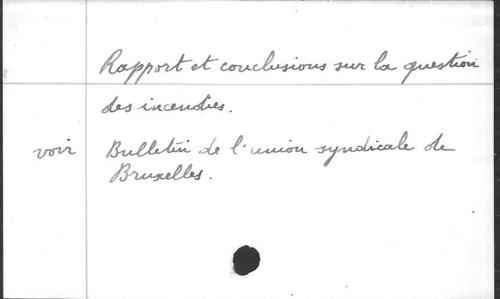 Rapport et conclusions sur la question
des incendies.
voir Bulletin de l'union syndicale de
Bruxelles.